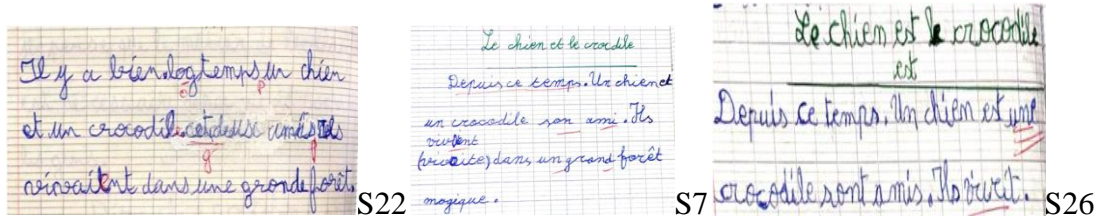 Il y a bien logtemps un chien
et un crocodile cet deux amis Ils
vivaitent dans une grande forêt.
S22
Le chien et le crocdile
Depuis ce temps. Un chien et
un crocodile son ami. Ils
vivtent
(vivoite) dans un grand forêt
magique.
S7
Le chien est le crocodile
est
Depuis ce temps. Un chien est une
crocodile sont amis. Ils vivrit.
S26